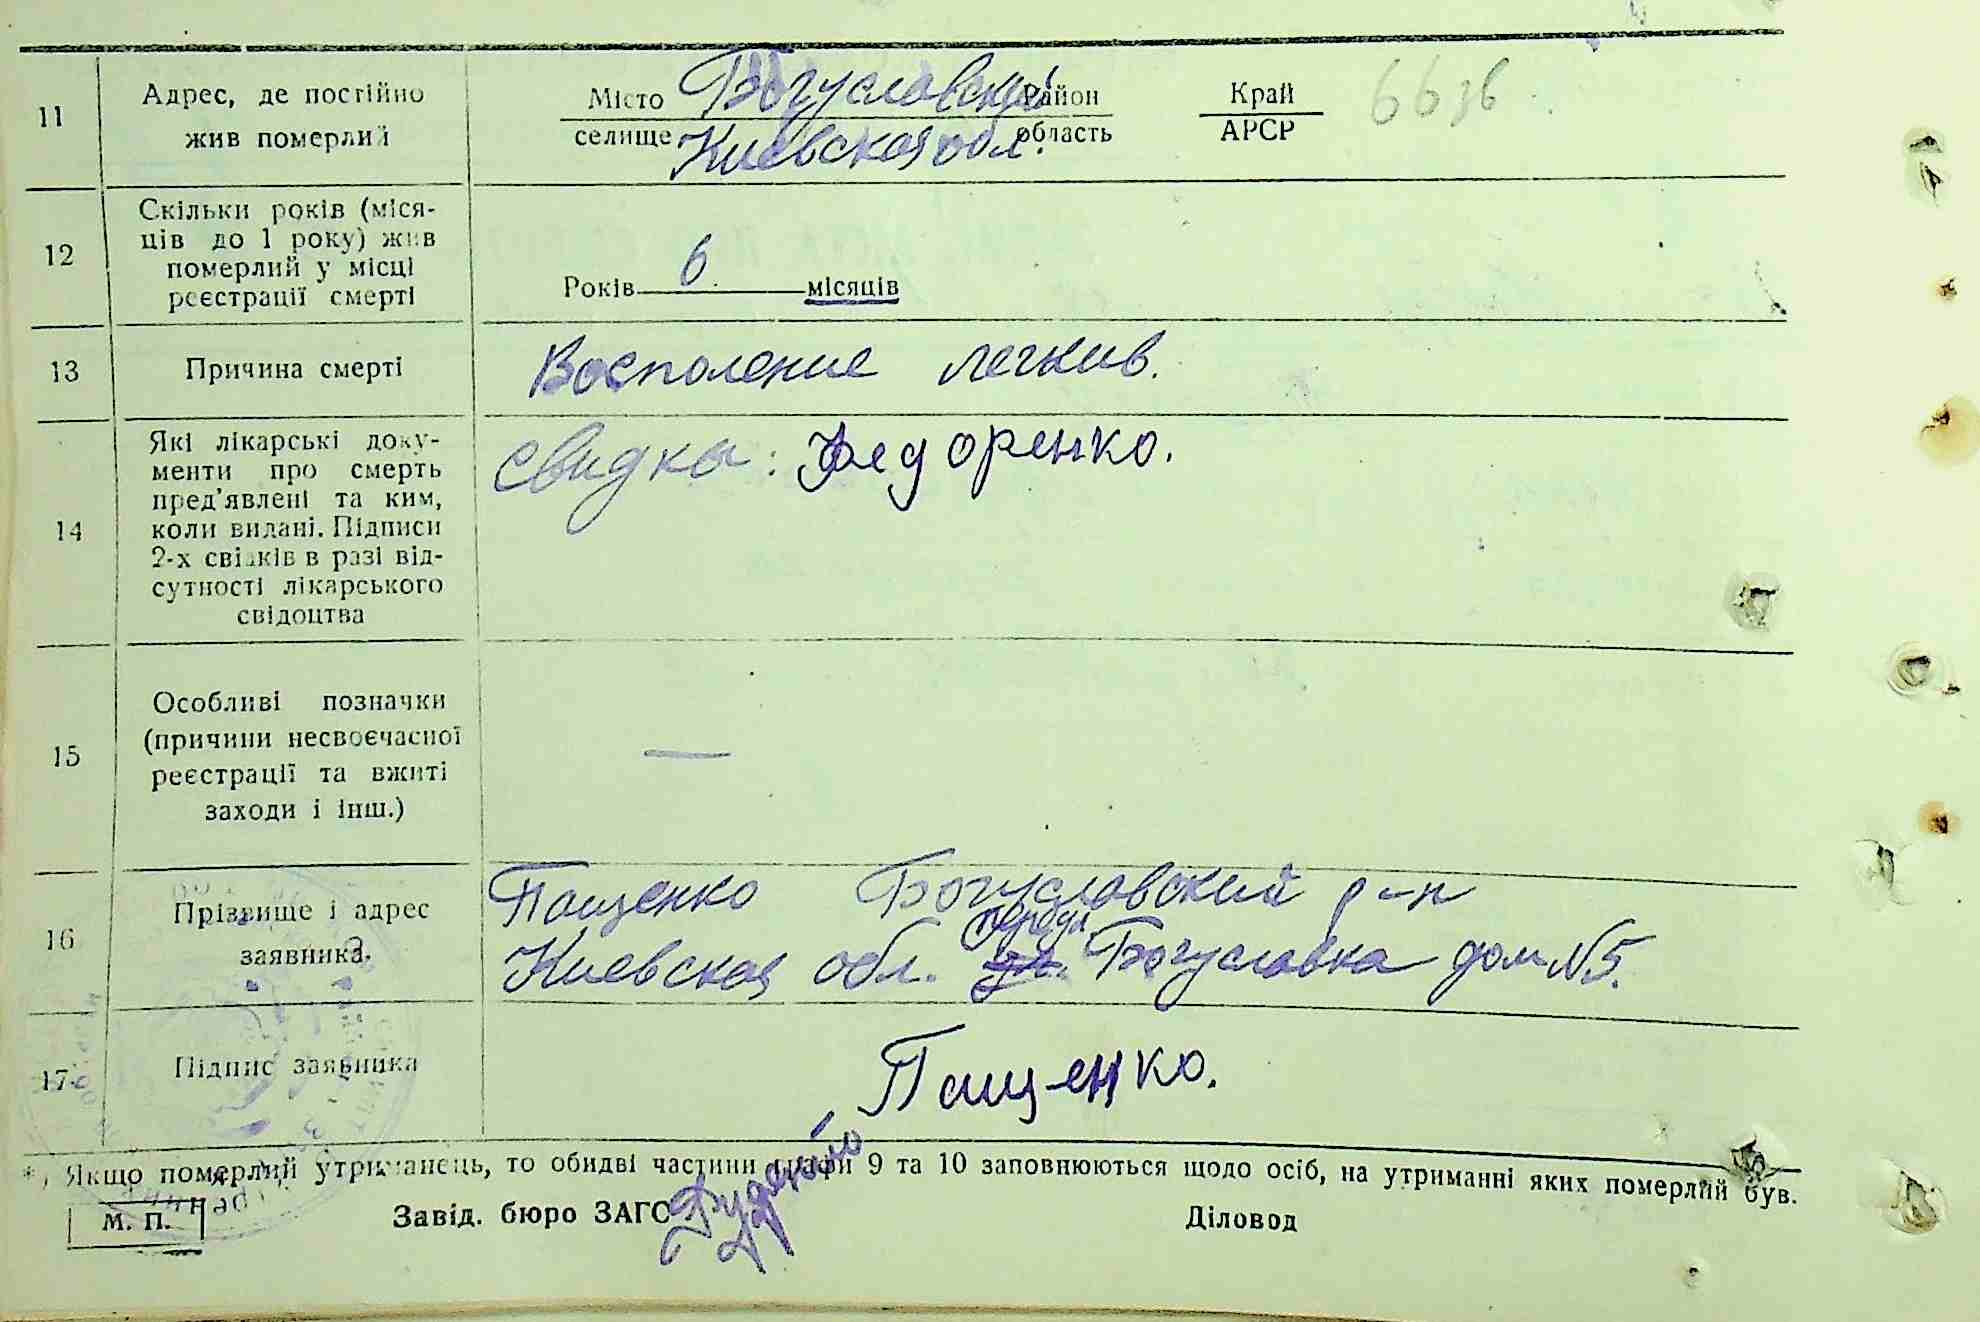 66 зв
11 Адрес, де постійно жив померлий
Місто селище Богуславский Район
Киевская обл. область
Край АРСР
12 Скільки років (міся-
ців до 1 року) жив
померлий у місці
реєстрації смерті
Років 6 місяців
13 Причина смерті Восполение легкив.
14 Які лікарські доку-
менти про смерть
пред'явлені та ким,
коли видані. Підписи
2-х свідків в разі від-
сутності лікарського
свідоцтва
Свидка: Федоренко.
15 Особливі позначки
(причини несвоєчасної
реєстрації та вжиті
заходи і інш.)
—
16 Прізвище і адрес
заявника.
Пащенко Богуславский р-н
Киевская обл. Богуславка дом №5.
17 Підпис заявника Пащенко.
*) Якщо померлий утриманець, то обидві частини графи 9 та 10 заповнюються щодо осіб, на утриманні яких померлий був.
М. П. Завід. бюро ЗАГС Діловод